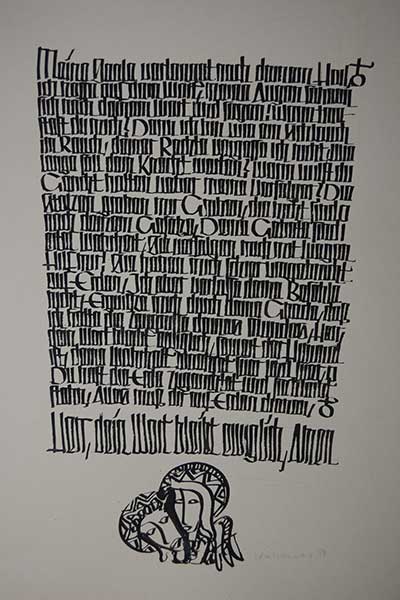 Meine Seele verlangt nach deinem Heil,
ich hoffe auf dein Wort, meine Augen sehnen
sich nach deinem Wort und sagen: wann trö-
stest du mich? Denn ich bin wie ein Schlauch
im Rauch, deine Rechte vergesse ich nicht, wie
lange soll dein Knecht warten? wann willst du
Gericht halten über meine Verfolger? Die
Stolzen graben mir Gruben, die nicht sind
nach deinem Gesetze, Deine Gebote sind
eitel Wahrheit, Sie verfolgen mich mit Lügen,
Hilf mir, Sie haben mich fast umgebracht
auf Erden, Ich aber verlasse deine Befehle
nicht, Erquicke mich nach deiner Gnade, daß
ich halte die Zeugnisse deines Mundes, Herr,
dein Wort bleibt ewiglich, soweit der Himmel
ist, deine Wahrheit währet für und für,
Du hast die Erde zugerichtet und sie bleibt
stehen,
Herr, dein Wort bleibt ewiglich, Amen